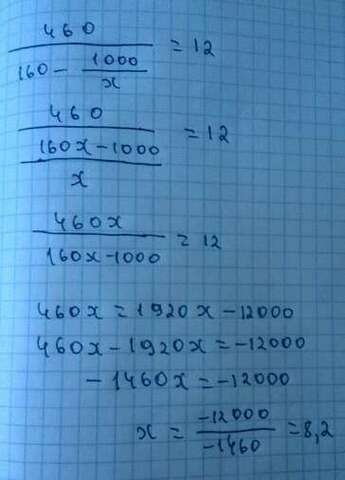 460
160 - 1000 = 12
x
460
160x - 1000 = 12
x
460x
160x - 1000 = 12
460x = 1920x - 12000
460x - 1920x = -12000
- 1460x = -12000
x = -12000 = 8,2
-1460